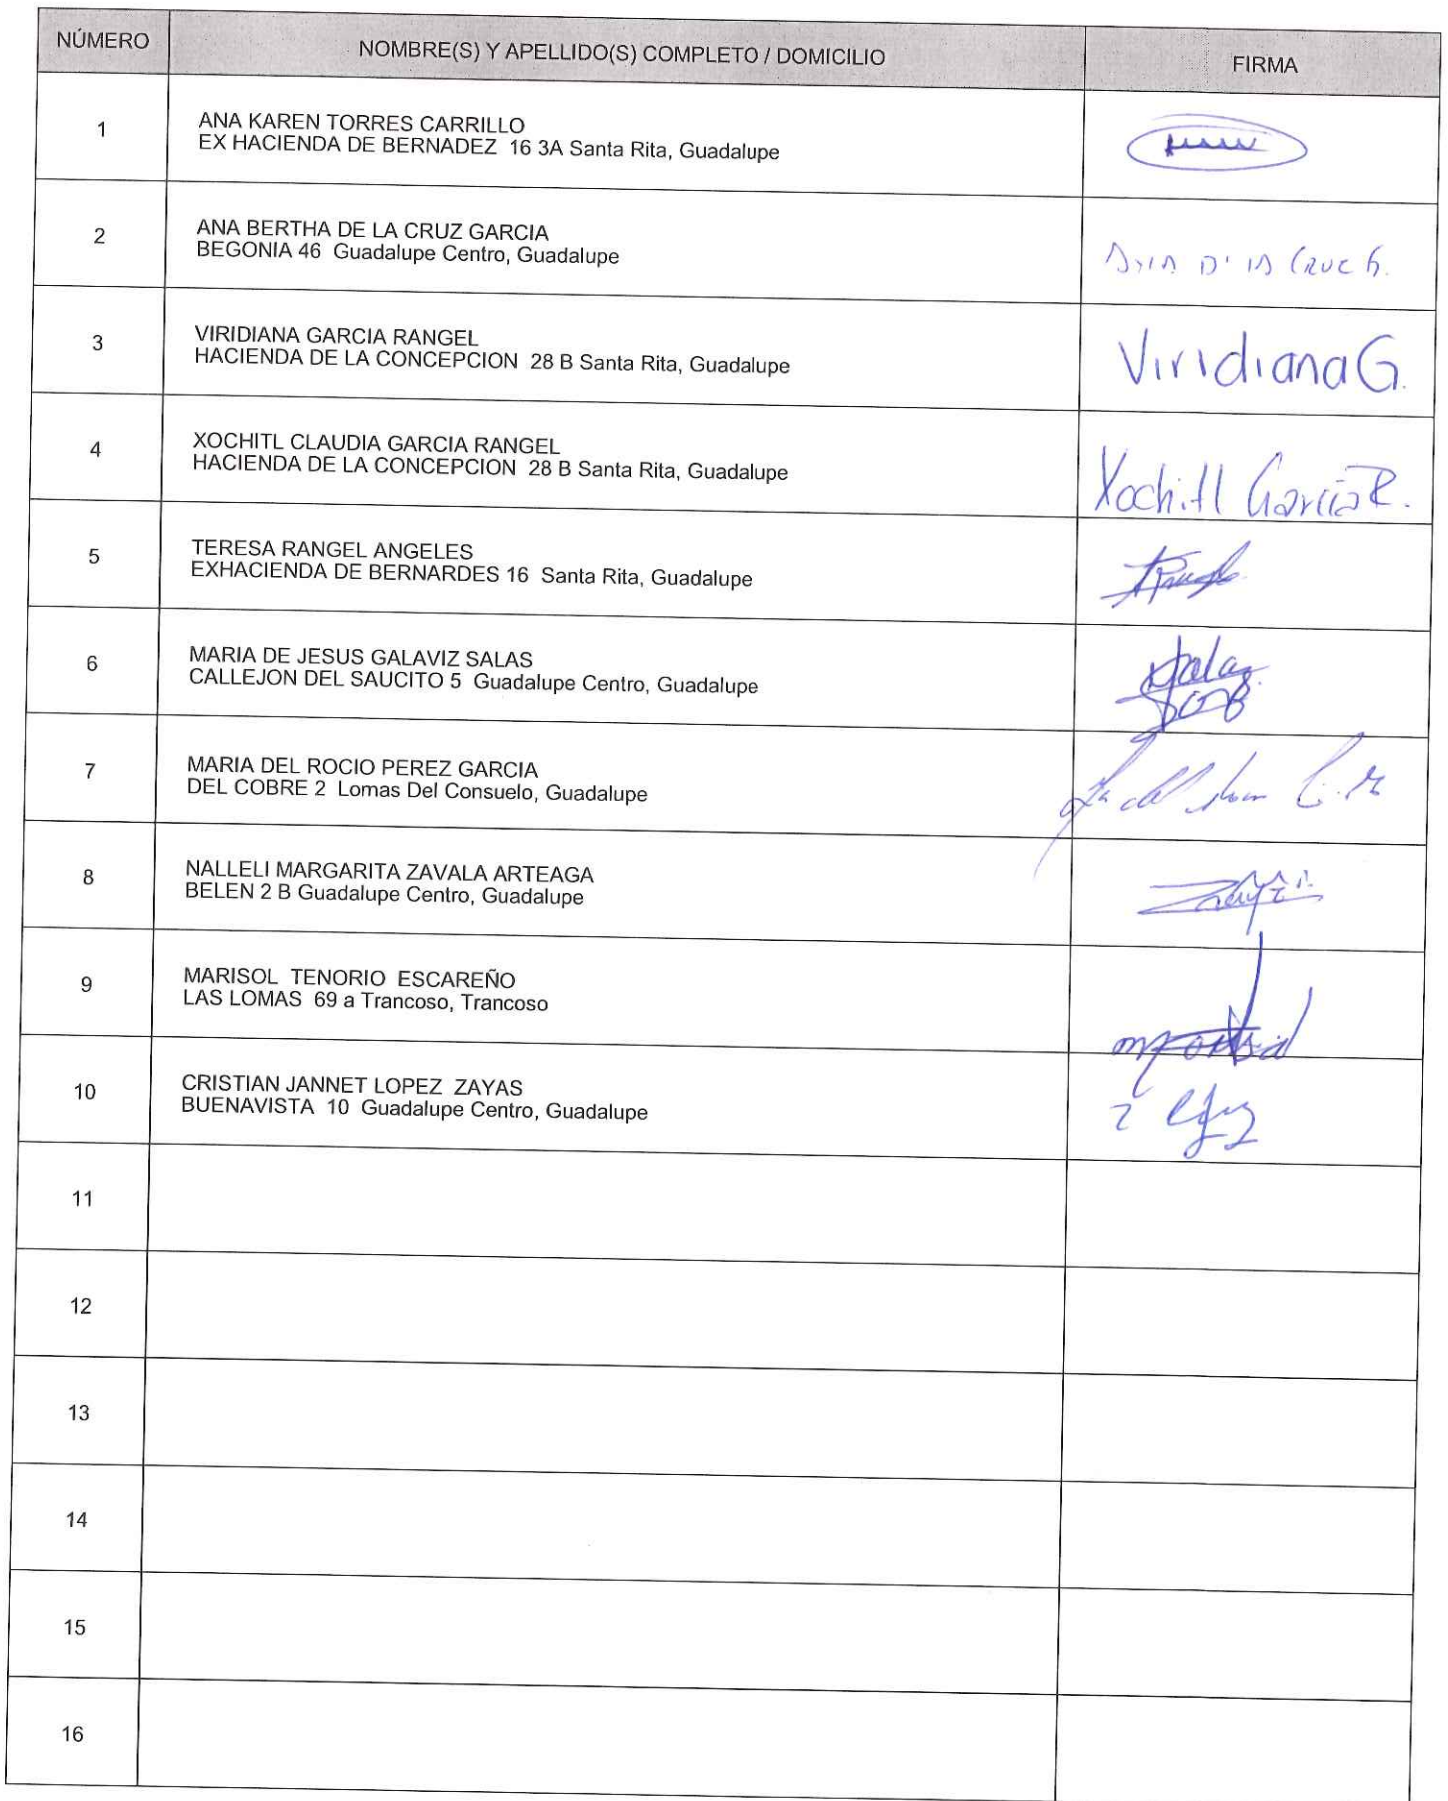 NÚMERO NOMBRE(S) Y APELLIDO(S) COMPLETO / DOMICILIO FIRMA
1 ANA KAREN TORRES CARRILLO
EX HACIENDA DE BERNADEZ 16 3A Santa Rita, Guadalupe
2 ANA BERTHA DE LA CRUZ GARCIA
BEGONIA 46 Guadalupe Centro, Guadalupe
3 VIRIDIANA GARCIA RANGEL
HACIENDA DE LA CONCEPCION 28 B Santa Rita, Guadalupe
Viridiana G.
4 XOCHITL CLAUDIA GARCIA RANGEL
HACIENDA DE LA CONCEPCION 28 B Santa Rita, Guadalupe
Xochitl García R.
5 TERESA RANGEL ANGELES
EXHACIENDA DE BERNARDES 16 Santa Rita, Guadalupe
6 MARIA DE JESUS GALAVIZ SALAS
CALLEJON DEL SAUCITO 5 Guadalupe Centro, Guadalupe
7 MARIA DEL ROCIO PEREZ GARCIA
DEL COBRE 2 Lomas Del Consuelo, Guadalupe
8 NALLELI MARGARITA ZAVALA ARTEAGA
BELEN 2 B Guadalupe Centro, Guadalupe
9 MARISOL TENORIO ESCAREÑO
LAS LOMAS 69 a Trancoso, Trancoso
10 CRISTIAN JANNET LOPEZ ZAYAS
BUENAVISTA 10 Guadalupe Centro, Guadalupe
11
12
13
14
15
16